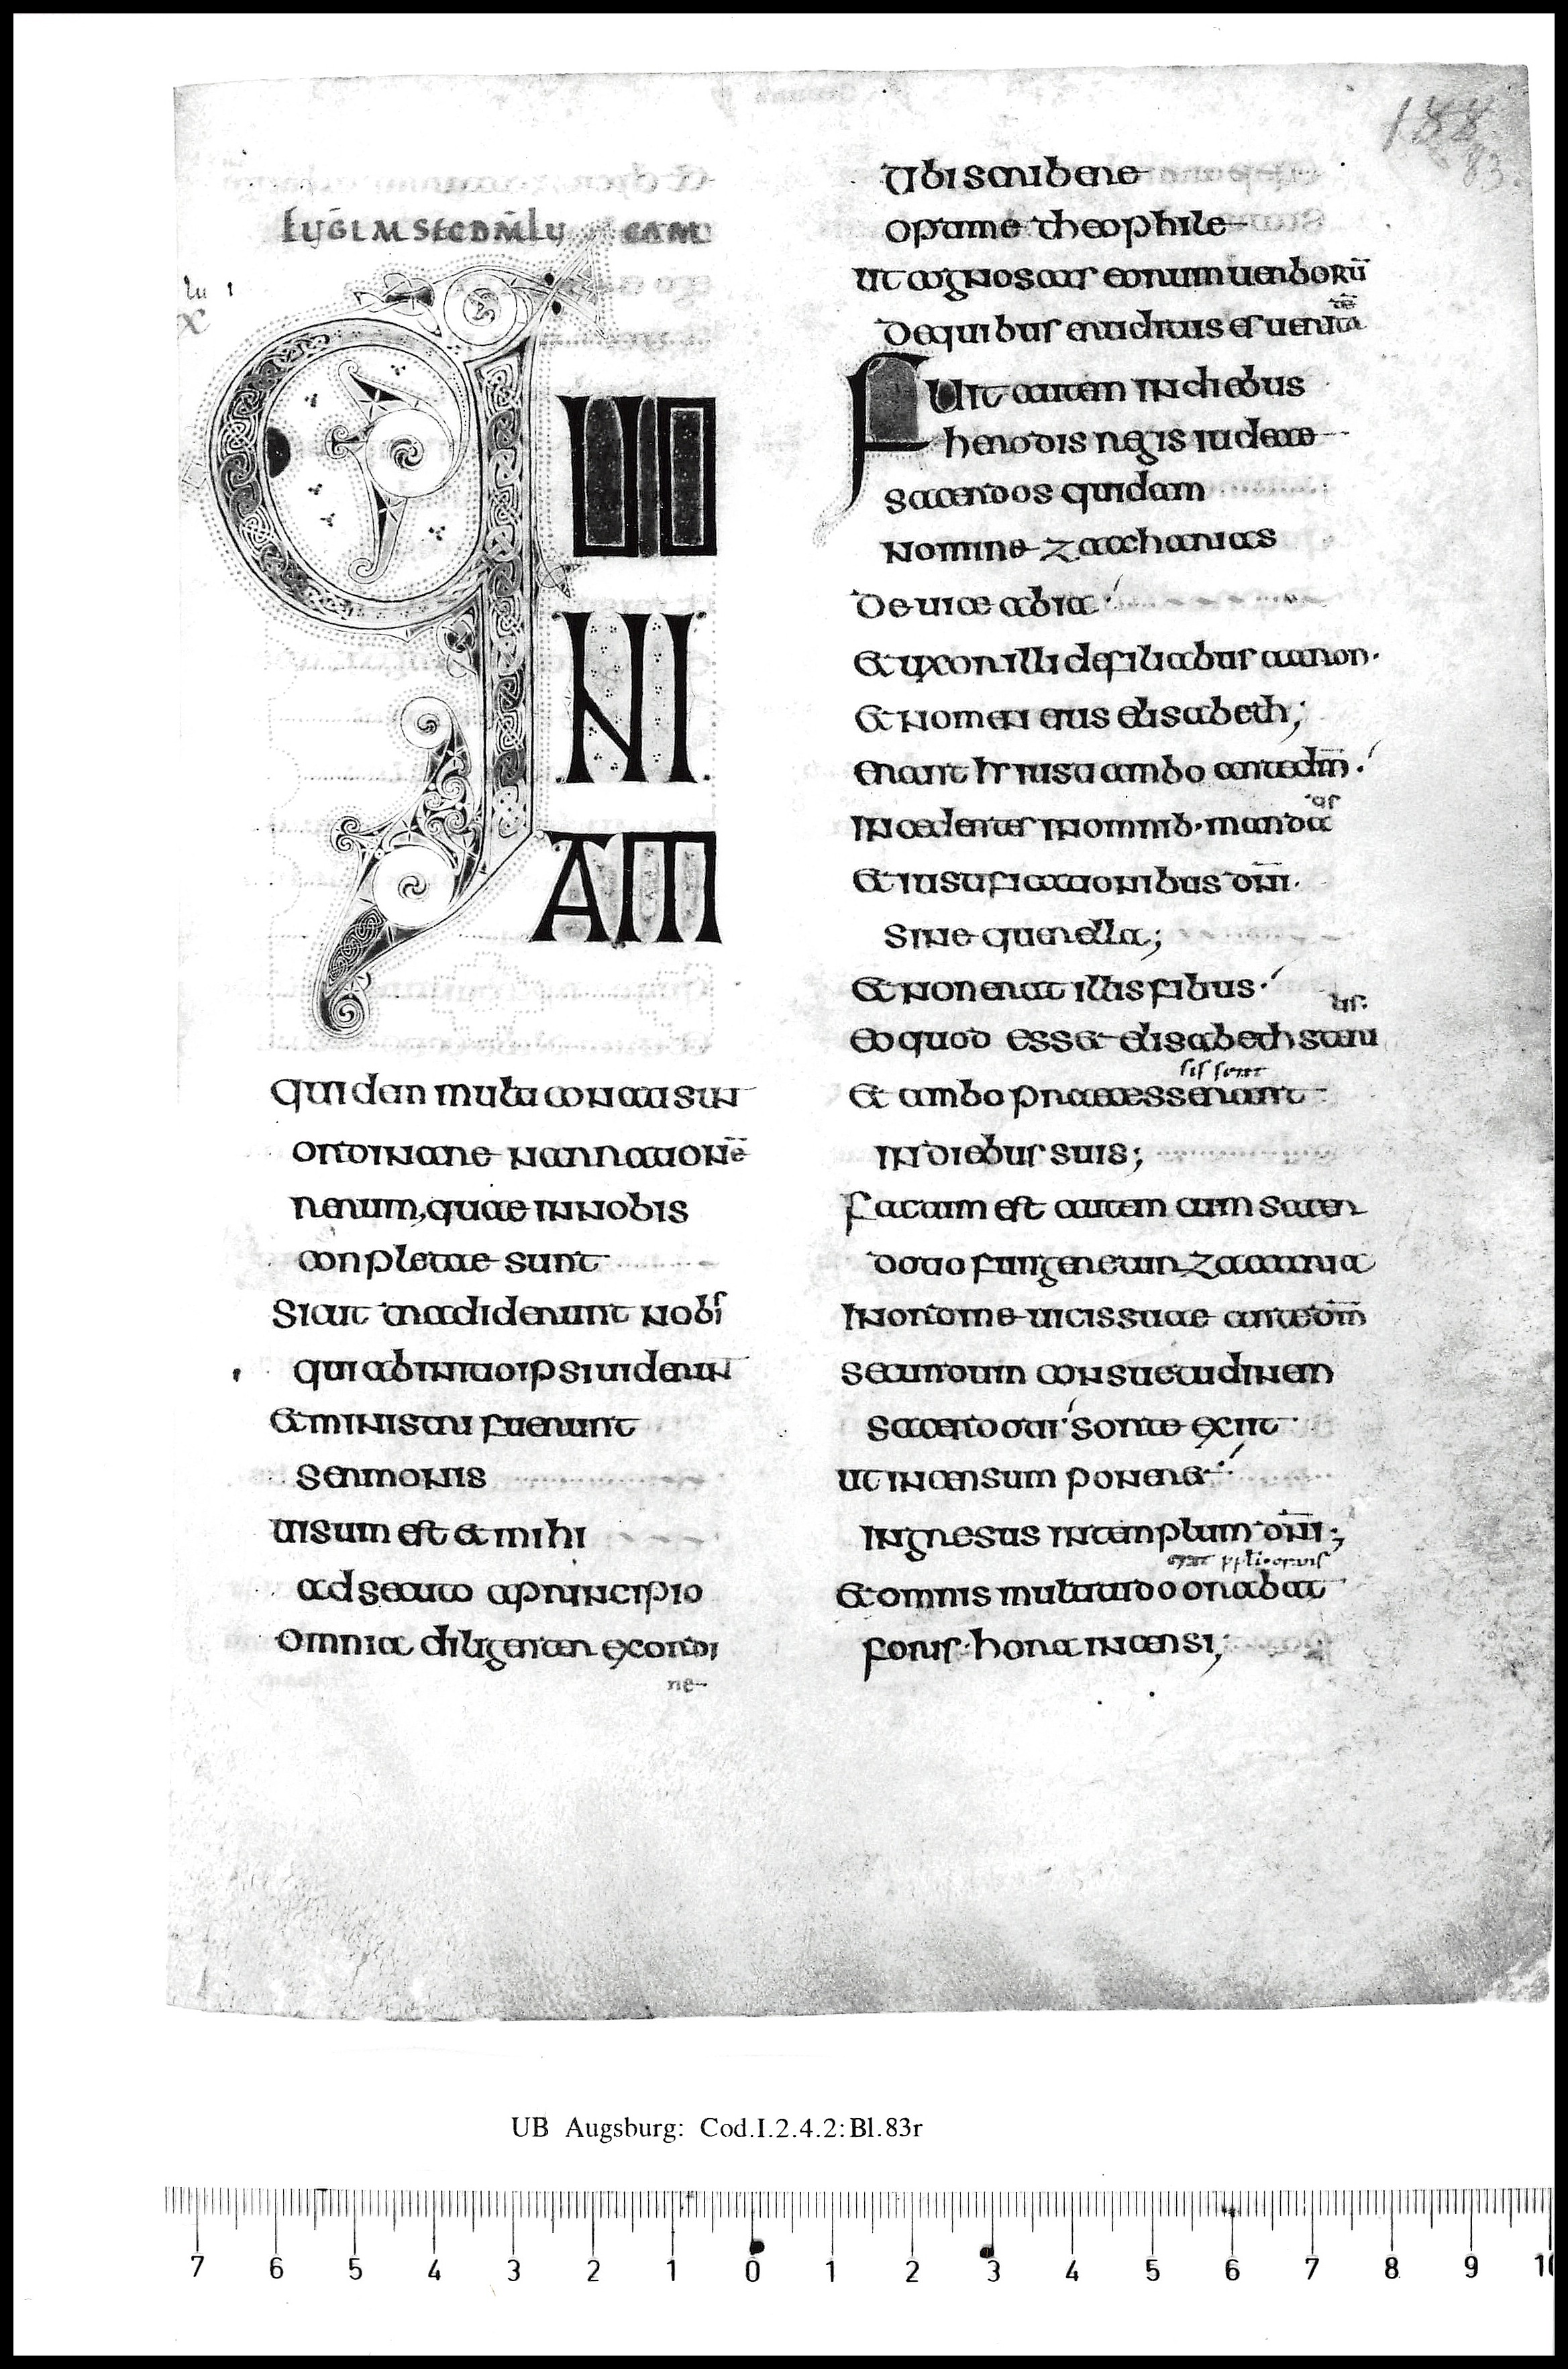 188
83
EUGLM SECDM LU CAM
lu 1
X
QUO
NI
AM
quidem multi conati sunt
ordinare narrationē
rerum, quae in nobis
conpletae sunt
Sicut tradiderunt nobis
qui ab initio ipsi uiderunt
et ministri fuerunt
sermonis
uisum est et mihi
adsecuto a principio
omnia diligenter ex ordi
ne
tibi scribere
optime theophile
ut cognoscas eorum uerborū
de quibus eruditus es uerita
tē
Fuit autem in diebus
herodis regis iudeae
sacerdos quidam
nomine zaccharias
de uice abia
et uxor illi de filiabus aaron.
et nomen eius elisabeth;
erant iusti ambo ante dm̄.
incedentes in omnib. manda
tis
et iustificationibus dni.
sine querella;
et non erat illis filius.
eo quod esset elisabeth steri
lis.
et ambo processerant
sis sent
in diebus suis;
Factum est autem cum sacer
dotio fungeretur zaccaria
in ordine uicis suae ante dm̄
secundum consuetudinem
sacerdotii sorte exiit
ut incensum poneret
ingresus in templum dni;
et omnis multitudo orabat
erat ppli orans
foris hora incensi;
UB Augsburg: Cod.I.2.4.2:Bl.83r
7 6 5 4 3 2 1 0 1 2 3 4 5 6 7 8 9 10